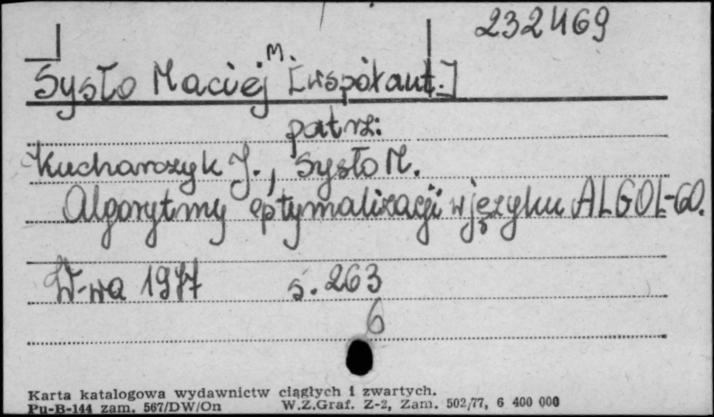 232469
Sysło Maciej M. [współaut.]
patrz:
Kucharczyk J., Sysło M.
Algorytmy optymalizacji w języku ALGOL-60.
W-wa 1977 s. 263
6
Karta katalogowa wydawnictw ciągłych i zwartych.
Pu-B-144 zam. 567/DW/On W.Z.Graf. Z-2, Zam. 502/77, 6 400 000